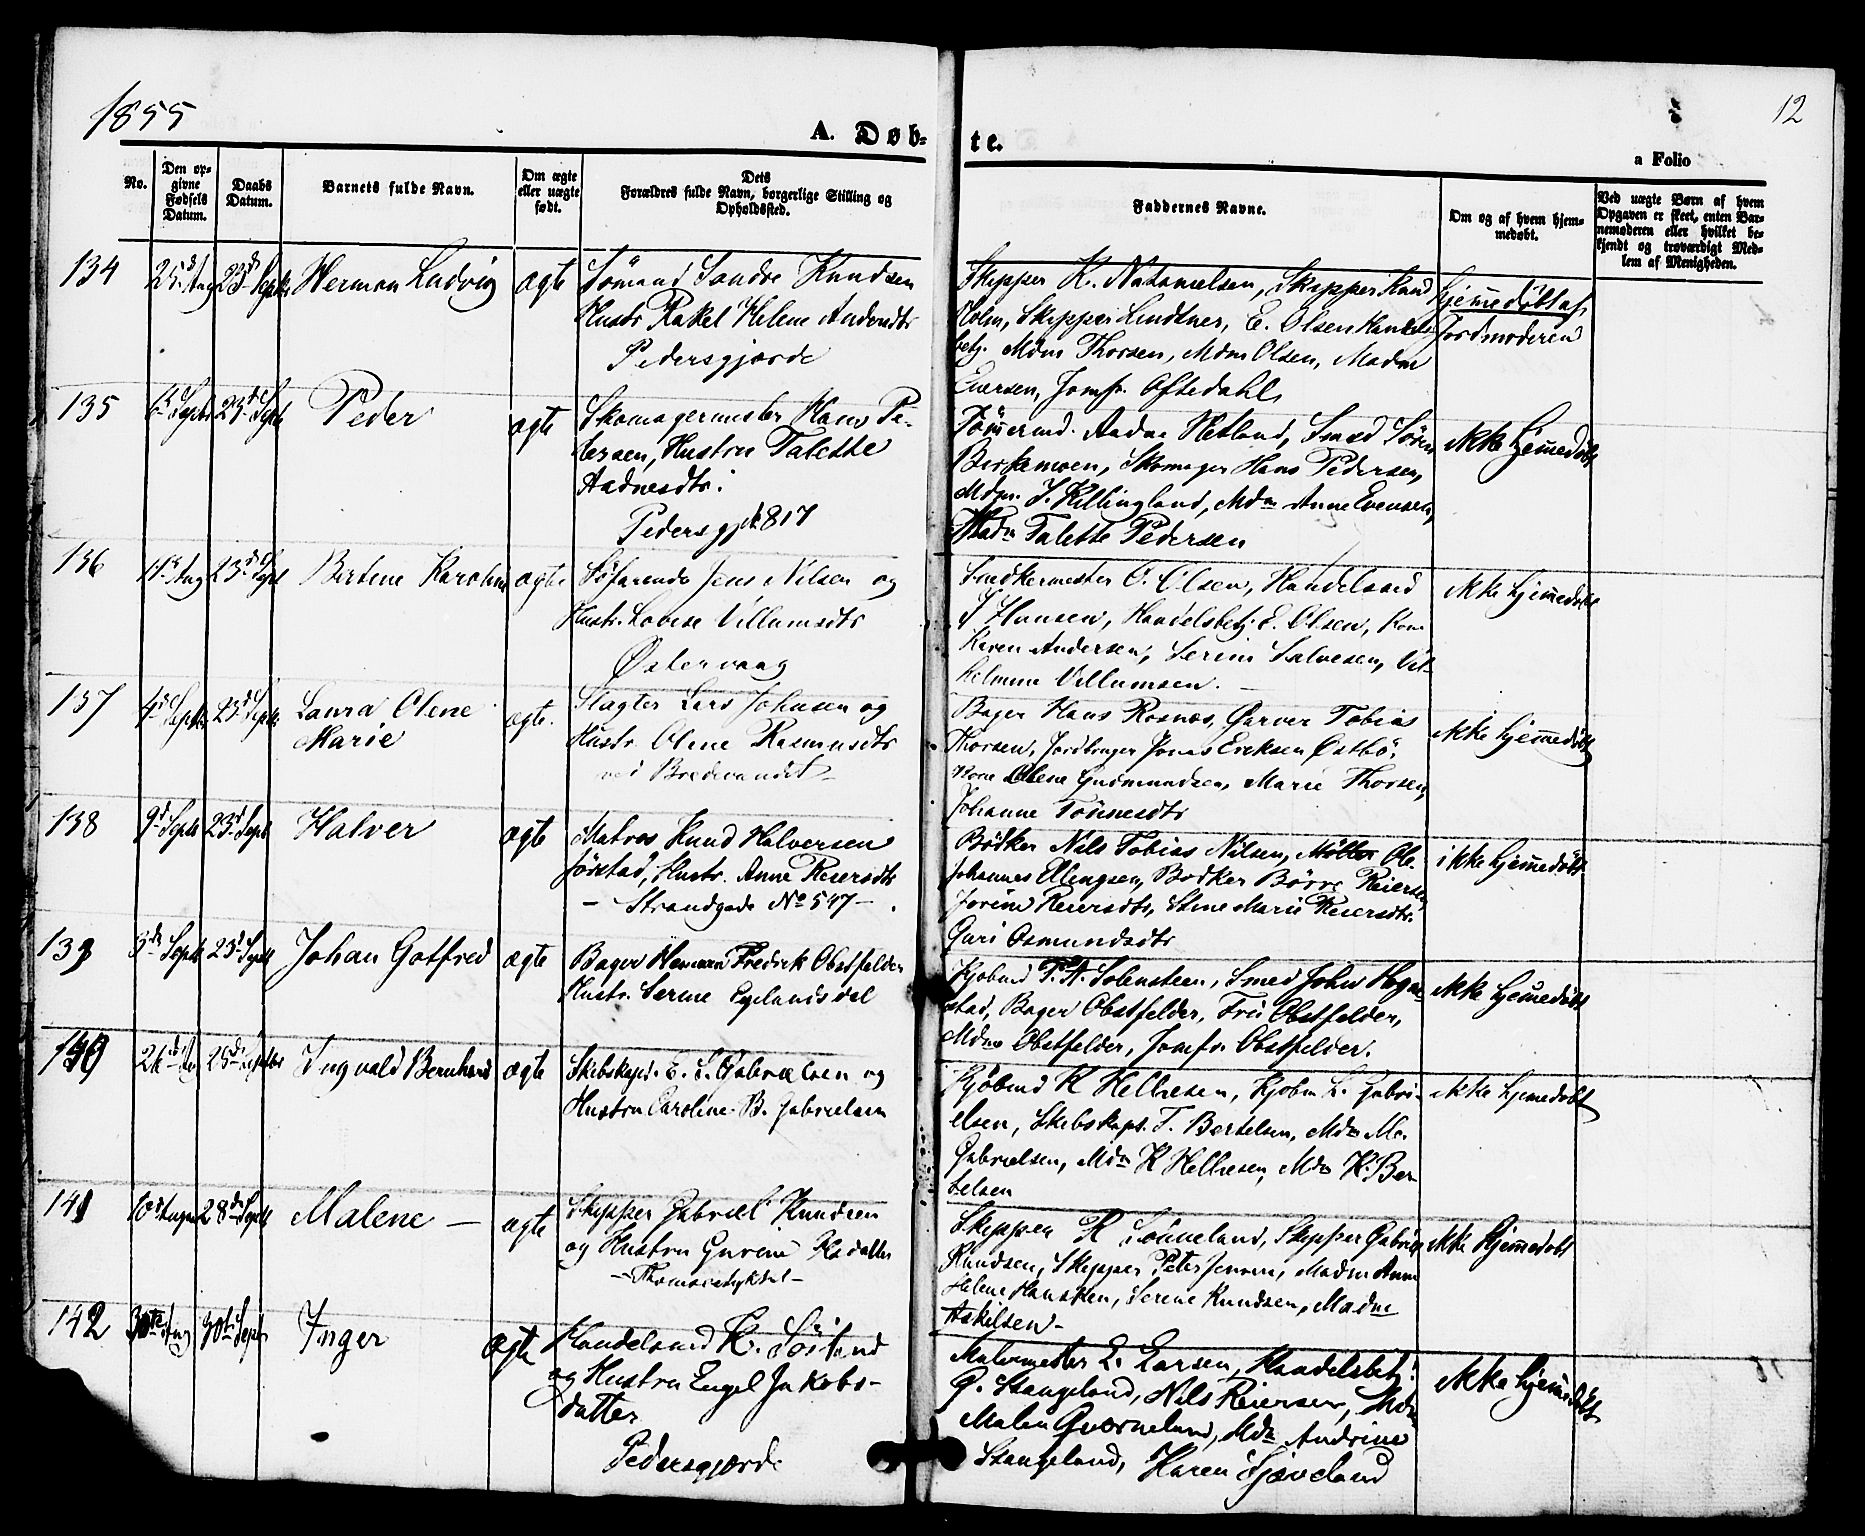 1855
12
A. Døb-
te.
a Folio
No.
Den op-
givne
Fødsels
Datum.
Daabs
Datum.
Barnets fulde Navn.
Om ægte
eller uægte
født.
Dets
Forældres fulde Navn, borgerlige Stilling og
Opholdssted.
Faddernes Navne.
Om og af hvem hjem-
medøbt.
Ved uægte Børn af hvem
Opgaven er skeet, enten Bar-
nemoderen eller hvilket be-
kjendt og troværdigt Med-
lem af Menigheden.
134
25d Aug
23d Septr
Herman Ludvig
ægte
Sömand Sondre Knudsen
Hustr Rakel Helene Andersdtr
Pedersgjærde
Skipper K. Natanielsen, Skipper Knud
Holm, Skipper Lindtner, E. Olsen Handels
betj. Mdm Thorsen, Mdm Olsen, Madm
Eversen, Jomfr. Oftedahl,
Hjemedöbt af
Jordmoderen
135
Septr
23d Septr
Peder
ægte
Skomagermester Hans Pe-
tersen, Hustru Talette
Aadnesdtr.
Pedersgj. 817
Tömermd. Aadne Hetland, Smed Sören
Skomager Hans Pedersen,
Mdm. J. Killingland, Mdm Anne Evensen,
Madm Talette Pedersen
ikke hjemedöbt
136
Aug
23d Septr
Bertine Karoline
ægte
Söfarende Jens Nilsen og
Hustr. Lovise Villumsdtr
Østervaag
Snedkermester O. Olsen, Handelsmd
J Hansen, Handelsbetj. E. Olsen, Kone
Karen Andersen, Serine Salvesen, Vil-
helmine Villumsen.
ikke hjemedöbt
137
4d Septr
23d Septr
Laura Olene
Marie
ægte.
Slagter Lars Johnsen og
Hustr Olene Rasmusdtr
ved Bredevandet
Bager Hans Rosnæs, Garver Tobias
Thorsen, Jordbruger Jonas Ereksen Østbö,
Kone Olene Gudmundsen, Marie Thorsen,
Johanne Tönnesdtr
ikke hjemedöbt
138
9d Septr
23d Septr
Halver
ægte
Matros Knud Halversen
Jörstad, Hustr. Anne Reiersdtr
- Strandgade No 547 -
Bödker Nils Tobias Nilsen, Möller Ole
Johannes Ellingsen, Bödker Börre Reiersen
Jorine Reiersdtr, Stine Marie Reiersdtr.
Guri Osmundsdtr
ikke hjemedöbt
139
Septr
23d Septr
Johan Gotfred
ægte
Bager Herman Fredrik Obstfelder
Hustr. Serine Egelandsdal
Kjöbmd T. A. Solensteen, Smed John Hogn-
stad, Bager Obstfelder, Fru Obstfelder,
Mdme Obstfelder, Jomfr Obstfelder.
ikke hjemedöbt
140
26d Aug
25d Septbr
Ingvald Bernhard
ægte
Skibskapt. E. S. Gabrielsen og
Hustru Caroline B. Gabrielsen
Kjöbmd K Hellesen, Kjöbm L. Gabri-
elsen, Skibskapt. T. Bertelsen, Mdm M.
Gabrielsen, Mdm K Hellesen, Mdm K. Ber
telsen
ikke hjemedöbt
141
10d August
28d Septr
Malene -
ægte
Skipper Gabriel Knudsen
og Hustru Gurine
Skipper R Sömeland, Skipper Gabriel
Knudsen, Skipper Peter Jensen, Madm Anne
Helene Hansen, Serine Knudsen, Madme
Askildsen -
ikke Hjemedöbt
142
30te Aug
30te Septr
Inger
ægte
Handelsmd K. Söiland
og Hustru Engel Jakobs-
datter
Pedersgjærde
Malermester E. Larsen, Handelsbetj.
G. Stangeland, Nils Reiersen, Mdm
Malen Qværneland, Mdm Andrine
Stangeland, Karen Gjæveland
ikke hjemmedöbt